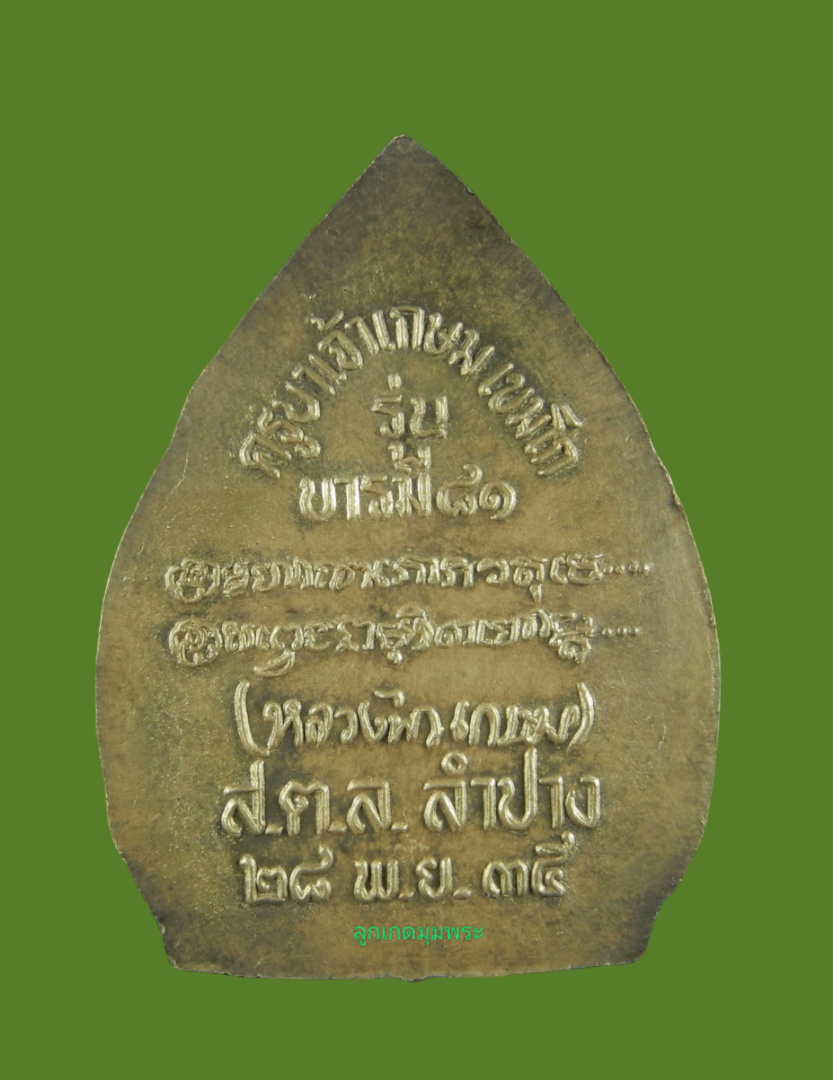 ครูบาเจ้าเกษม เขมโก
รุ่น
บารมี ๘๑
(หลวงพ่อเกษม)
ส.ต.ล. ลำปาง
๒๘ พ.ย. ๓๕
ลูกเกดมุมพระ